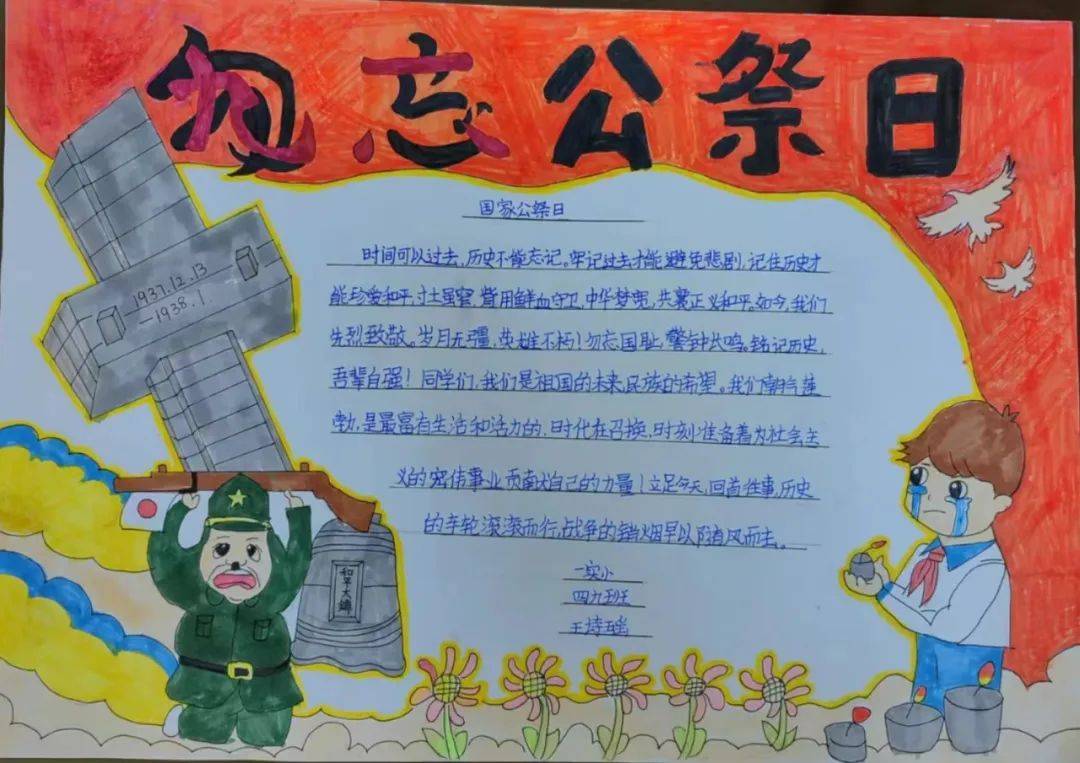 勿忘公祭日
国家公祭日
时间可以过去,历史不能忘记。牢记过去才能避免悲剧,记住历史才
能珍爱和平,寸土星窟,曾用鲜血守卫,中华梦宽,共襄正义和平。如今,我们
先烈致敬。岁月无疆,英雄不朽!勿忘国耻,警钟长鸣。铭记历史,
吾辈自强!同学们,我们是祖国的未来,民族的希望。我们朝气蓬
勃,是最富有生活和活力的,时代在召换,时刻准备着为社会主
义的宏伟事业,贡献自己的力量!立足今天,回首往事,历史
的车轮滚滚而行,战争的硝烟早以随风而去。
一实小
四九班
王诗瑶
1937.12.13
—1938.1
和平大鐘